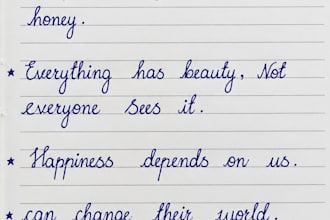 honey.
★ Everything has beauty, Not
everyone sees it.
★ Happiness depends on us.
★ can change their world.